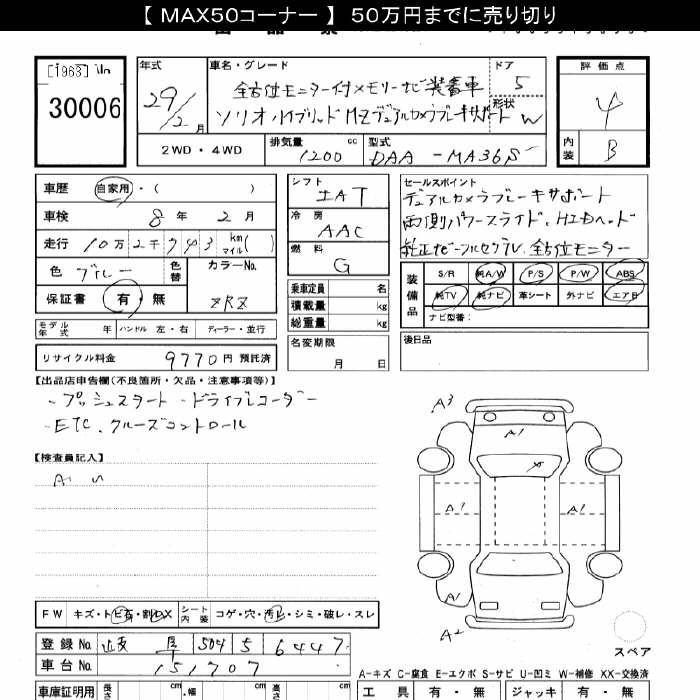 【 MAX50コーナー 】 50万円までに売り切り
[1963]
30006
年式
29/2月
車名・グレード
全方位モニター付メモリーナビ装着車
ソリオ ハイブリッドMZデュアルカメラブレーキサポート
ドア
5
形状
W
評価点
4
内装
B
2WD・4WD
排気量
1200
cc
型式
DAA-MA36S
車歴
自家用・( )
車検
8年2月
走行
10万2千743
km
マイル( )
色
ブルー
色替
カラーNo.
ZRZ
保証書
有・無
シフト
IAT
冷房
AAC
燃料
G
乗車定員
名
積載量
kg
総重量
kg
名変期限
月 日
セールスポイント
デュアルカメラブレーキサポート
両側パワースライド、HIDヘッド
純正ナビフルセグTV、全方位モニター
装備品
S/R
純A/W
P/S
P/W
ABS
純TV
純ナビ
革シート
外ナビ
エアB
ナビ型番:
モデル年式
年
ハンドル
左・右
ディーラー・並行
後日品
リサイクル料金
9770円預託済
【出品店申告欄(不良箇所・欠品・注意事項等)】
・プッシュスタート ・ドライブレコーダー
・ETC、クルーズコントロール
【検査員記入】
A・U
A3
A1
A1
A1
A1
A2
スペア
FW
キズ・トビ石・割DX
シート内装
コゲ・穴・汚れ・シミ・破レ・スレ
登録No.
岐阜
504
5
6447
車台No.
151707
A-キズ C-腐食 E-エクボ S-サビ U-凹ミ W-補修 XX-交換済
車庫証明用
長さ
cm
幅
cm
高さ
cm
工具
有・無
ジャッキ
有・無